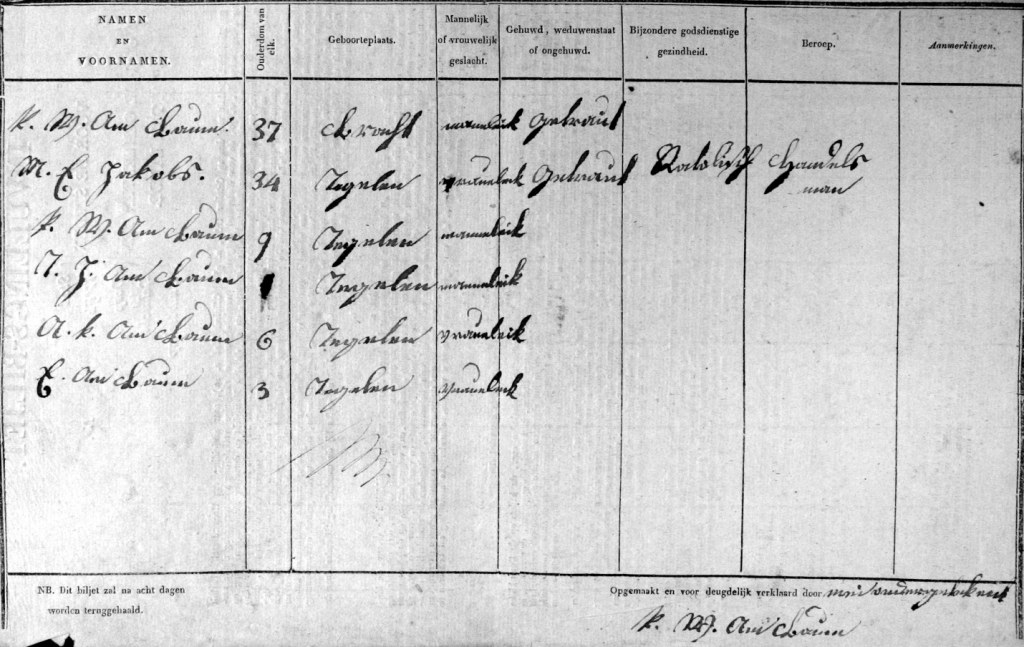 NAMEN
EN
VOORNAMEN.
Ouderdom van elk.
Geboorteplaats.
Mannelijk of vrouwelijk geslacht.
Gehuwd, weduwenstaat of ongehuwd.
Bijzondere godsdienstige gezindheid.
Beroep.
Aanmerkingen.
P. W. Am Baum. 37 Bracht manneleik Getraut
M. E. Jakobs. 34 Tegelen vraueleik Getraut Katolisch Handels
man
P. W. Am Baum 9 Tegelen manneleik
T. J. Am Baum Tegelen manneleik
A. k. Am Baum 6 Tegelen vraueleik
E. Am Baum 3 Tegelen vraueleik
NB. Dit biljet zal na acht dagen
worden teruggehaald.
Opgemaakt en voor deugdelijk verklaard door
P. W. Am Baum